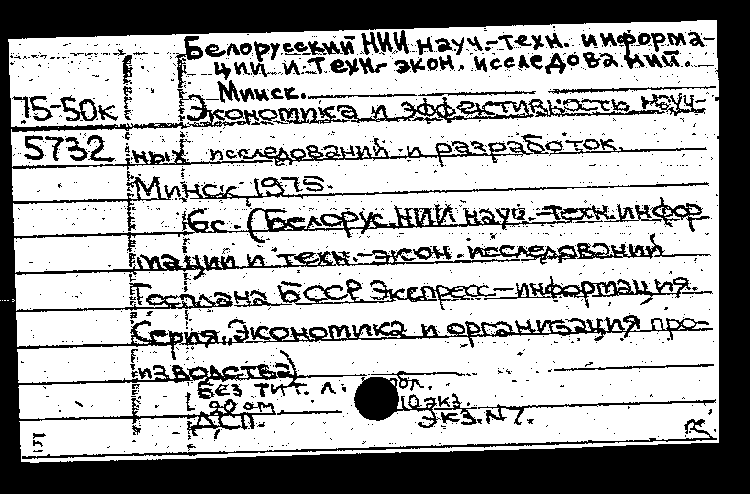 Белорусский НИИ науч.-техн. информа-
ции и техн.-экон. исследований.
Минск.
75-50к Экономика и эффективность науч-
5732 ных исследований и разработок.
Минск, 1975.
6с. (Белорус. НИИ науч.-техн. инфор
мации и техн.-экон. исследований
Госплана БССР Экспресс-информация.
Серия „Экономика и организация про-
изводства)
Без тит. л. обл.
20 см. 10 экз.
ДСП. Экз. N 7.